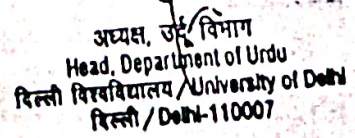 अध्यक्ष, उर्दू विभाग
Head, Department of Urdu
दिल्ली विश्वविद्यालय / University of Delhi
दिल्ली / Delhi-110007